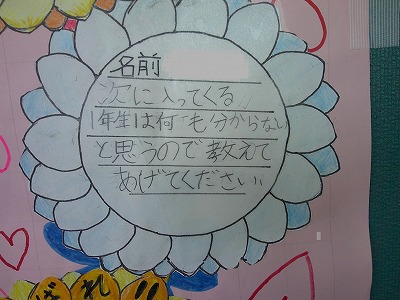 名前
次に入ってくる
1年生は何も分からない
と思うので教えて
あげてください。
ばれ!!